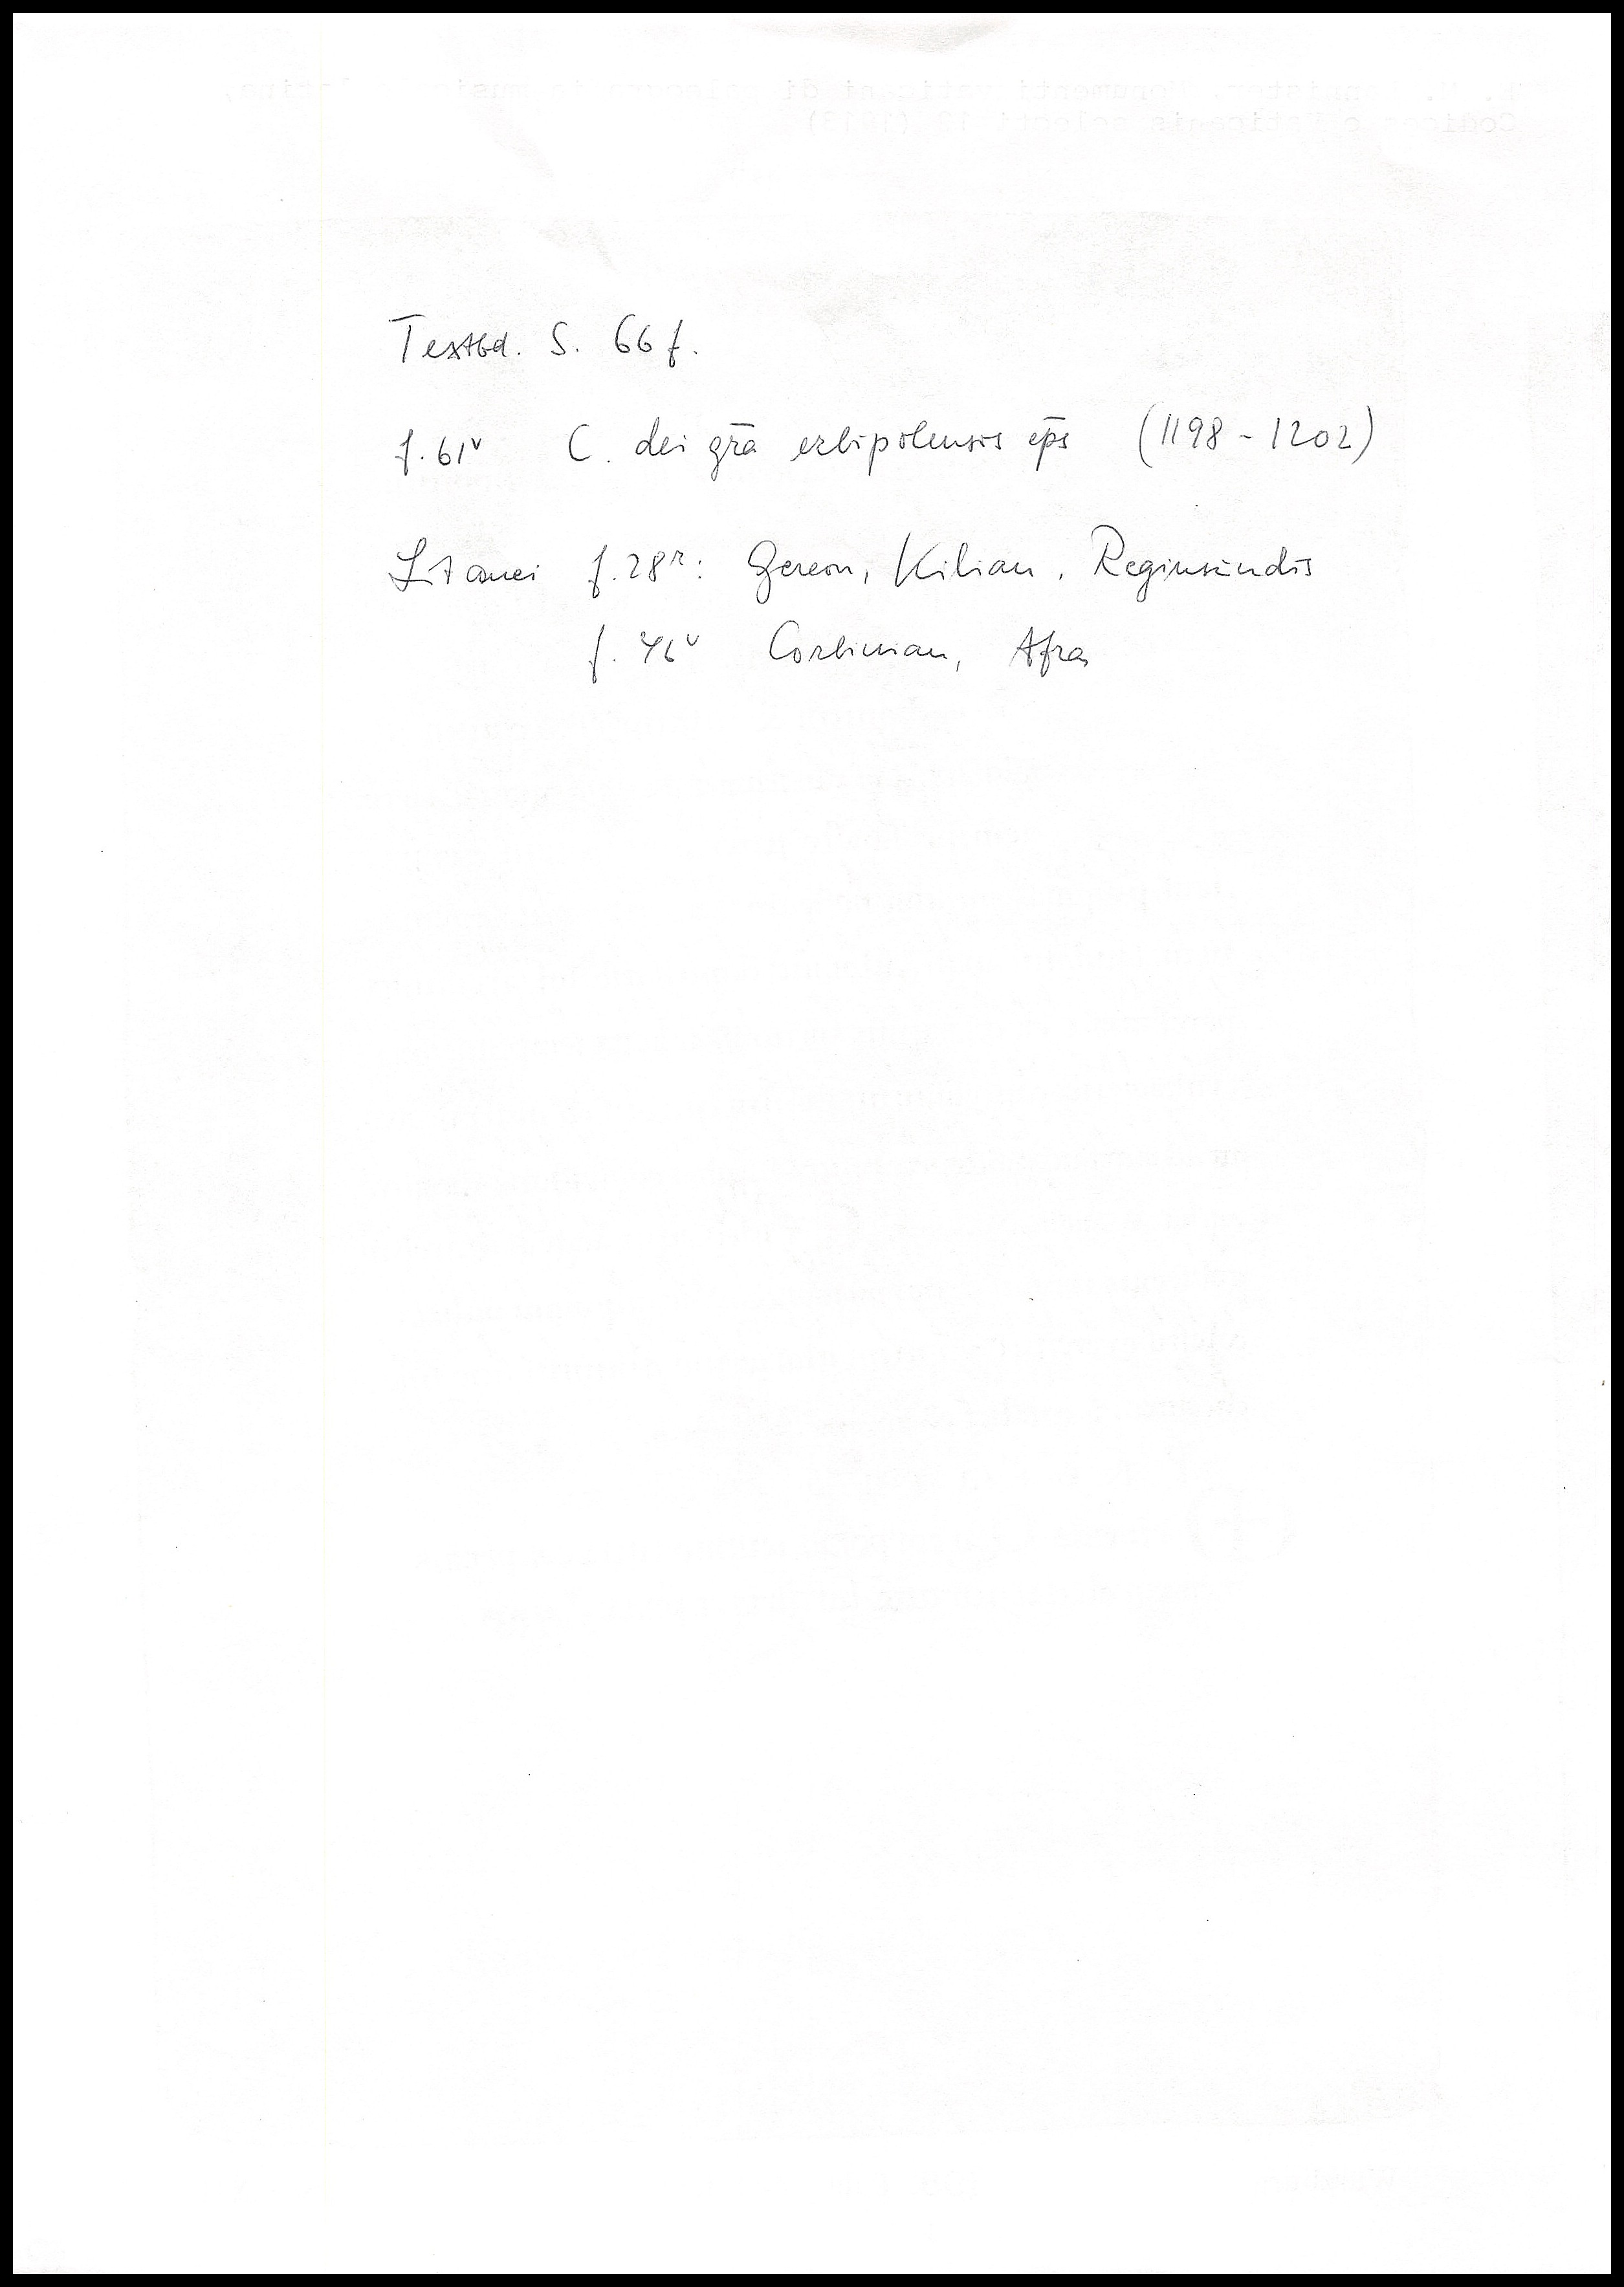 Textbd. S. 66 f.
f. 61v C. dei grā erbipolensis ep̄s (1198 - 1202)
Litanei f. 28r: Gereon, Kilian, Reginsindis
f. 46v Corbinian, Afra